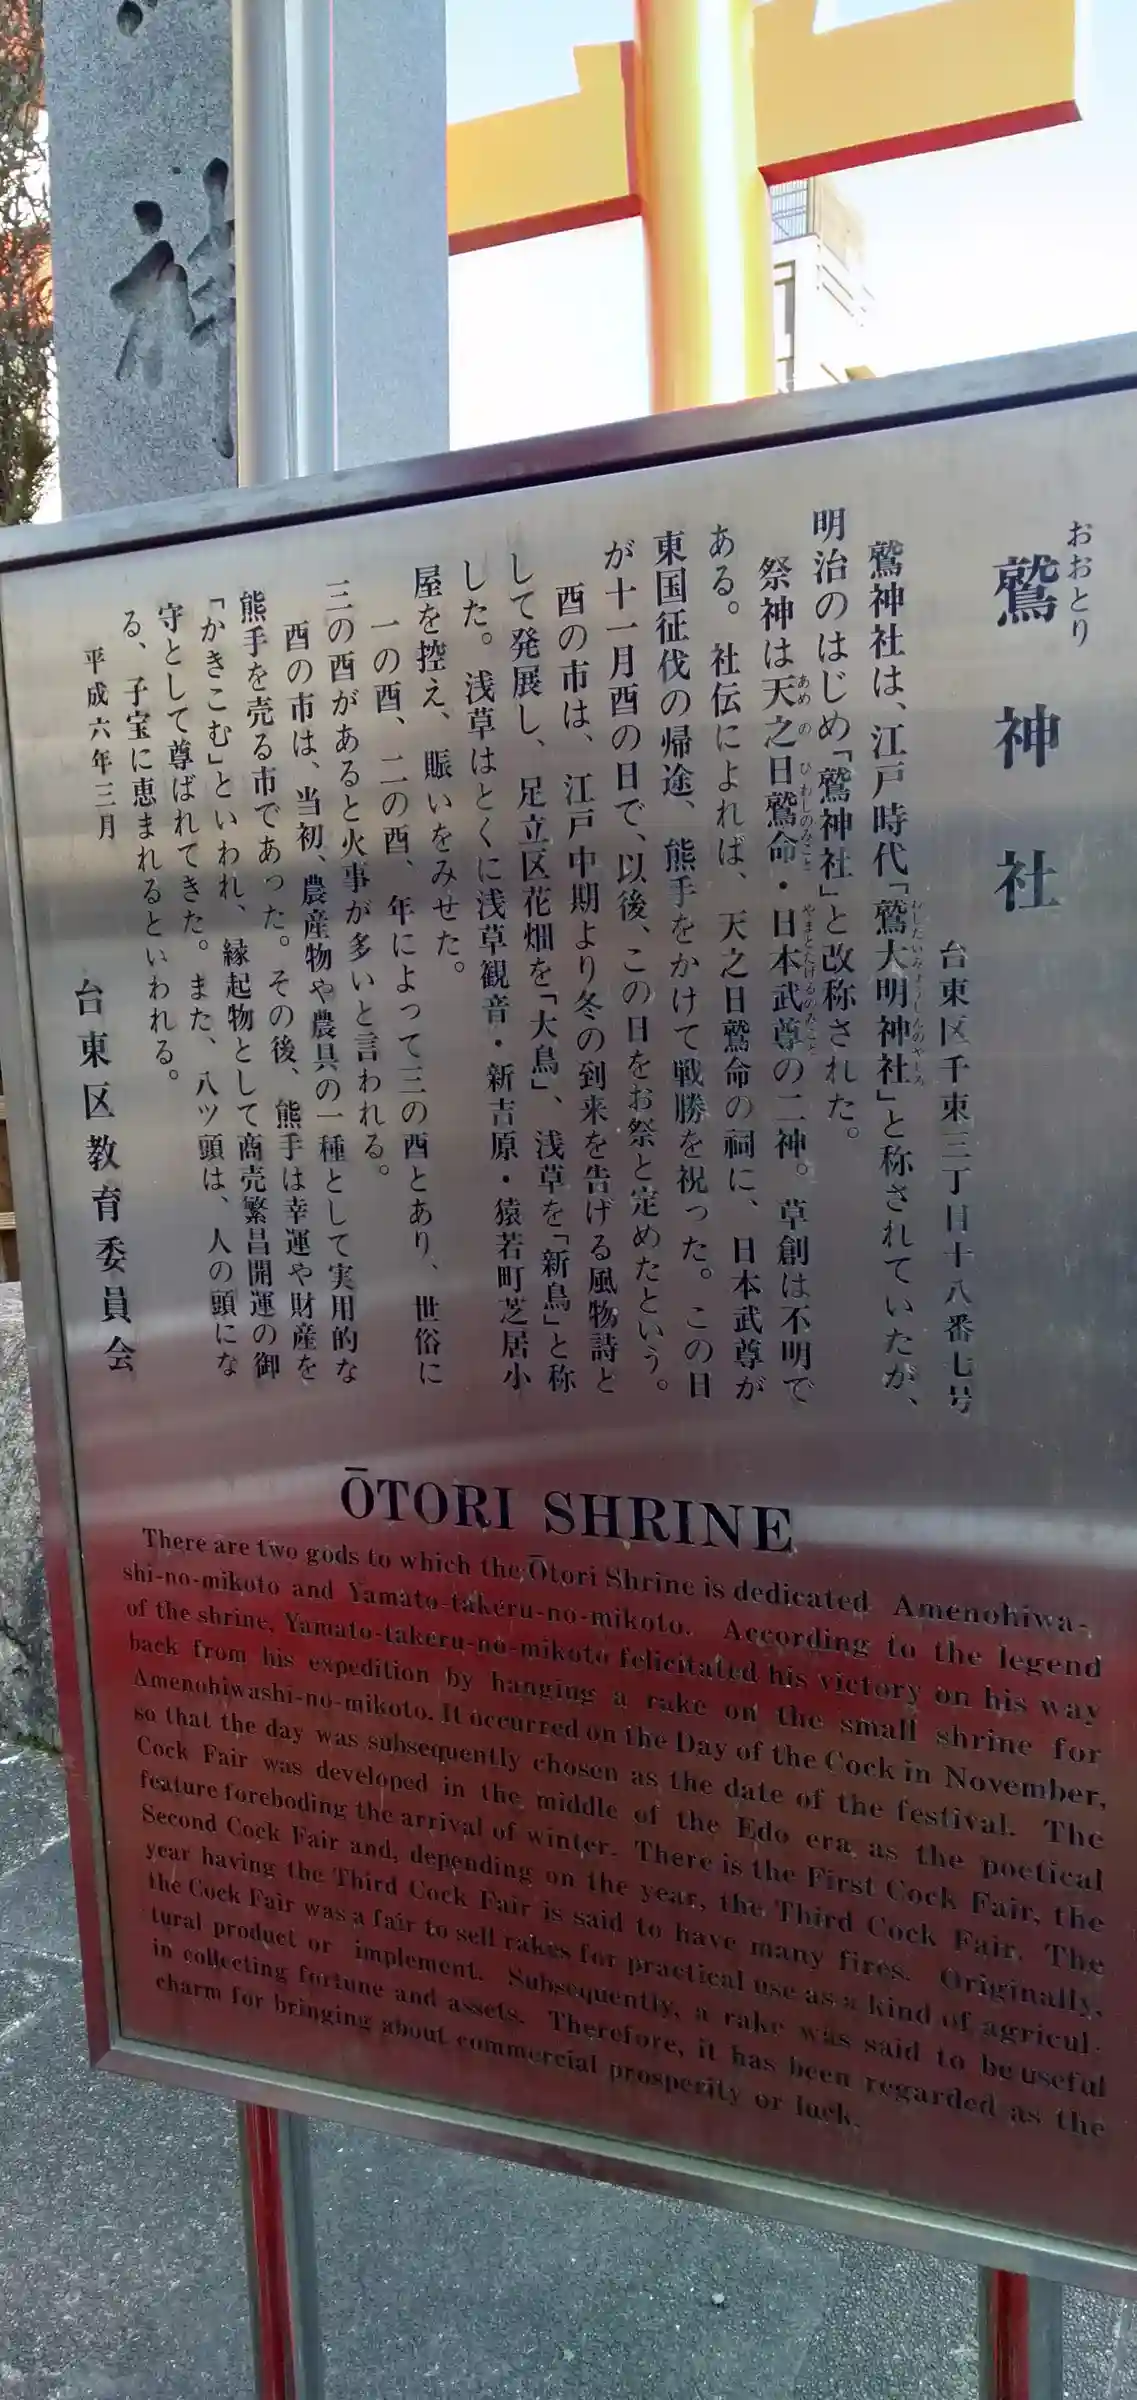 神
おおとり
鷲神社
台東区千束三丁目十八番七号
鷲神社は、江戸時代「鷲大明神社」と称されていたが、
わしだいみょうじんのやしろ
明治のはじめ「鷲神社」と改称された。
祭神は天之日鷲命・日本武尊の二神。草創は不明で
あめのひわしのみこと やまとたけるのみこと
ある。社伝によれば、天之日鷲命の祠に、日本武尊が
東国征伐の帰途、熊手をかけて戦勝を祝った。この日
が十一月酉の日で、以後、この日をお祭と定めたという。
酉の市は、江戸中期より冬の到来を告げる風物詩と
して発展し、足立区花畑を「大鳥」、浅草を「新鳥」と称
した。浅草はとくに浅草観音・新吉原・猿若町芝居小
屋を控え、賑いをみせた。
一の酉、二の酉、年によって三の酉とあり、世俗に
三の酉があると火事が多いと言われる。
酉の市は、当初、農産物や農具の一種として実用的な
熊手を売る市であった。その後、熊手は幸運や財産を
「かきこむ」といわれ、縁起物として商売繁昌開運の御
守として尊ばれてきた。また、八ツ頭は、人の頭にな
る、子宝に恵まれるといわれる。
平成六年三月
台東区教育委員会
ŌTORI SHRINE
There are two gods to which the Ōtori Shrine is dedicated Amenohiwa-
shi-no-mikoto and Yamato-takeru-no-mikoto. According to the legend
of the shrine, Yamato-takeru-no-mikoto felicitated his victory on his way
back from his expedition by hanging a rake on the small shrine for
Amenohiwashi-no-mikoto. It occurred on the Day of the Cock in November,
so that the day was subsequently chosen as the date of the festival. The
Cock Fair was developed in the middle of the Edo era as the poetical
feature foreboding the arrival of winter. There is the First Cock Fair, the
Second Cock Fair and, depending on the year, the Third Cock Fair. The
year having the Third Cock Fair is said to have many fires. Originally,
the Cock Fair was a fair to sell rakes for practical use as a kind of agricul-
tural product or implement. Subsequently, a rake was said to be useful
in collecting fortune and assets. Therefore, it has been regarded as the
charm for bringing about commercial prosperity or luck.